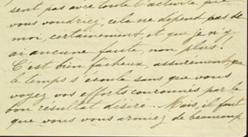 sent pas avec toute l'activité que
vous voudriez; cela ne dépend pas de
moi, certainement, et que je n'y
ai aucune faute, non plus!
C'est bien fâcheux, assurément que
le temps s'écoule sans que vous
voyez vos efforts couronnés par le
bon résultat désiré. Mais il faut
que vous vous armiez de beaucoup